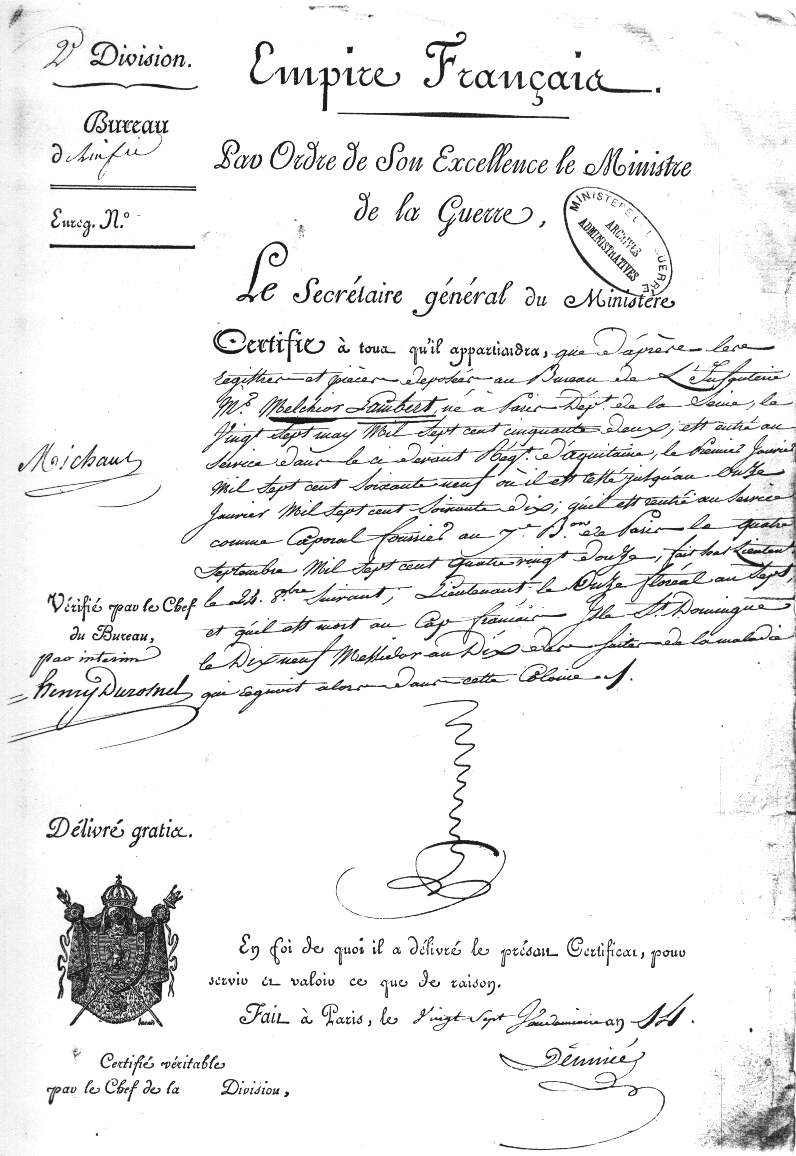 2e Division.
Bureau
d'Infie
Enreg. N.°
Empire Français.
Par Ordre de Son Excellence le Ministre
de la Guerre,
MINISTERE GUERRE
ARCHIVES
ADMINISTRATIVES
Le Secrétaire général du Ministère
Certifie à tous qu'il appartiendra, que d'après les
registres et pièces déposés au Bureau de L'Infanterie
Mr. Melchior Lambert, né à Paris Dépt. de la Seine, le
Vingt Sept may Mil Sept cent cinquante deux, est entré au
Service dans le ci devant Régt. d'aquitaine, le Premier Janvier
Mil Sept cent Soixante neuf où il est resté jusqu'au Onze
Janvier Mil Sept cent Soixante dix; qu'il est rentré au Service
comme Caporal fourrier au 7e. Bon. de Paris le quatre
Septembre Mil Sept cent quatre vingt douze, fait Sous Lieutent.
le 24. 8.bre Suivant, Lieutenant le Onze floréal an Sept,
et qu'il est mort au Cap français Isle St. Domingue
le Dix neuf Messidor an Dix des suites de la maladie
qui régnoit alors dans cette Colonie ./.
Michaux
Vérifié par le Chef
du Bureau,
par interim
Henry Durosnel
Délivré gratis.
En foi de quoi il a délivré le présent Certificat, pour
servir et valoir ce que de raison.
Fait à Paris, le Vingt Sept Vendemiaire an 14.
Denniée
Certifié véritable
par le Chef de la Division,